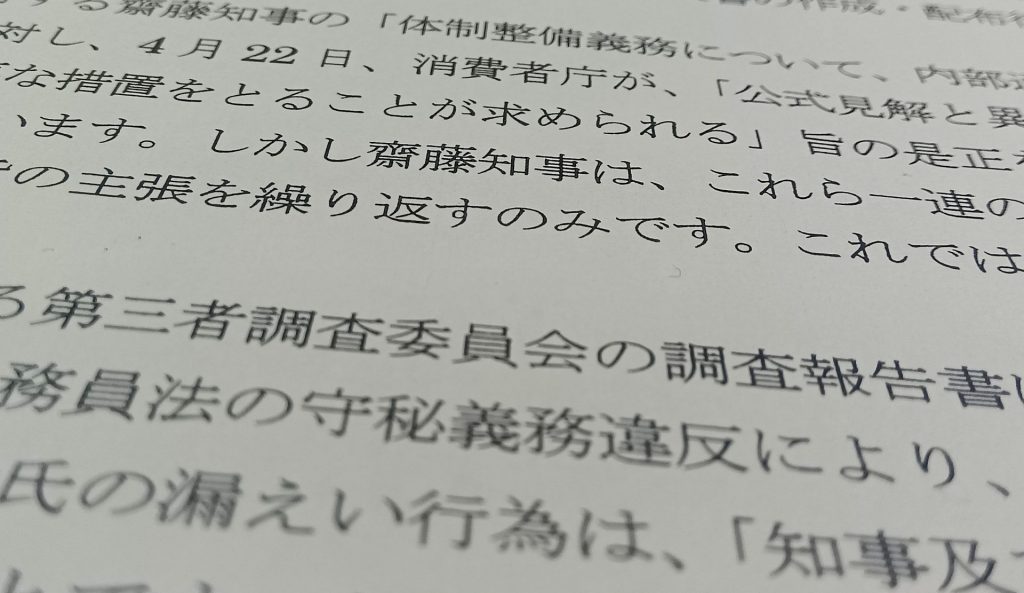 する齋藤知事の「体制整備義務について、内部通
対し、4月22日、消費者庁が、「公式見解と異
な措置をとることが求められる」旨の是正
います。しかし齋藤知事は、これら一連の
の主張を繰り返すのみです。これでは
る第三者調査委員会の調査報告書
務員法の守秘義務違反により、
氏の漏えい行為は、「知事及